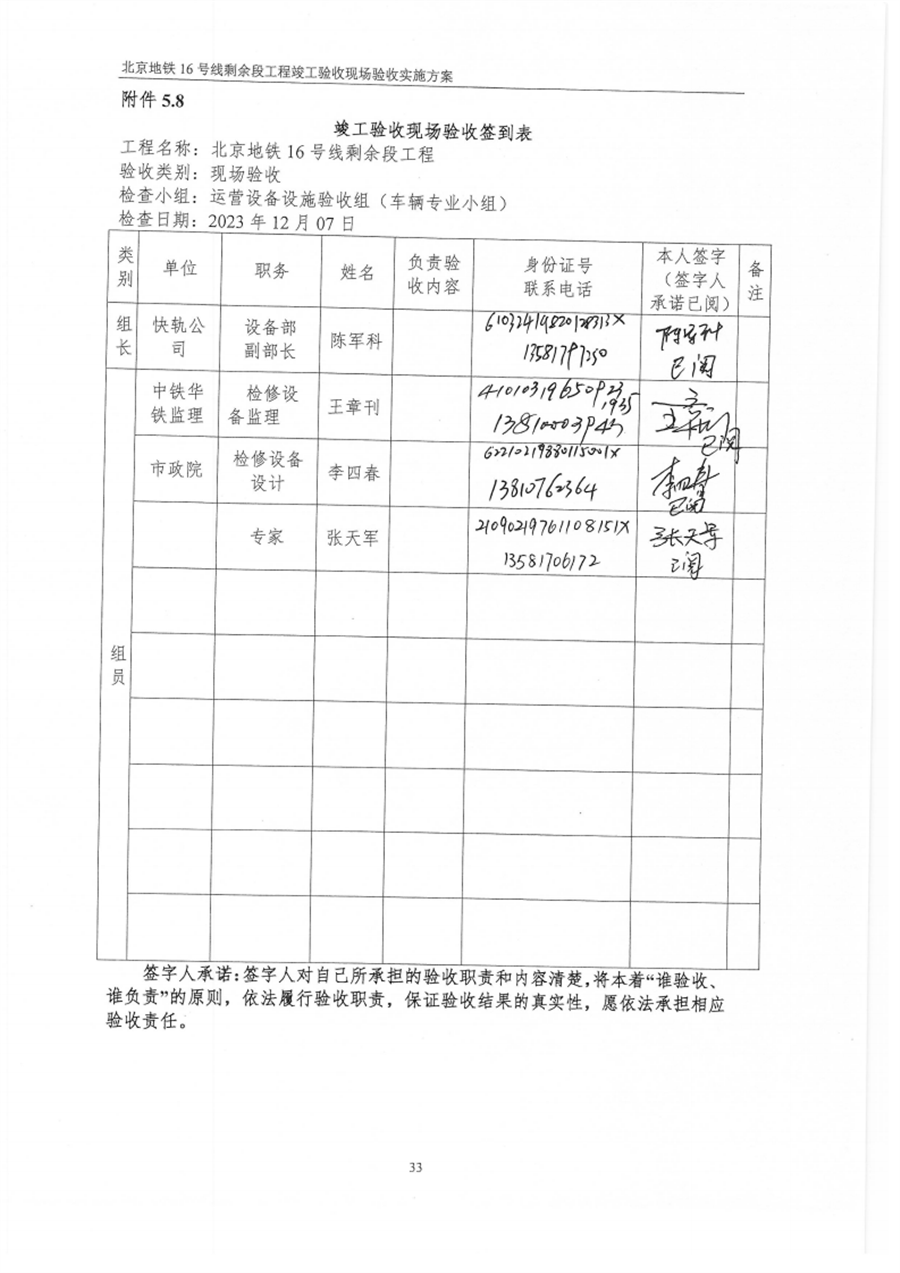 北京地铁 16 号线剩余段工程竣工验收现场验收实施方案
附件 5.8
竣工验收现场验收签到表
工程名称：北京地铁 16 号线剩余段工程
验收类别：现场验收
检查小组：运营设备设施验收组（车辆专业小组）
检查日期：2023 年 12 月 07 日
类
别
单位
职务
姓名
负责验
收内容
身份证号
联系电话
本人签字
（签字人
承诺已阅）
备
注
组
长
快轨公
司
设备部
副部长
陈军科
61032419820128313X
13581797250
陈军科
已阅
组
员
中铁华
铁监理
检修设
备监理
王章刊
41010319650923
1935
王章刊
已阅
市政院
检修设备
设计
李四春
62210219880115001X
13810762364
李四春
已阅
专家
张天军
21090219761108151X
13581706172
张天军
已阅
签字人承诺：签字人对自己所承担的验收职责和内容清楚，将本着“谁验收、
谁负责”的原则，依法履行验收职责，保证验收结果的真实性，愿依法承担相应
验收责任。
33